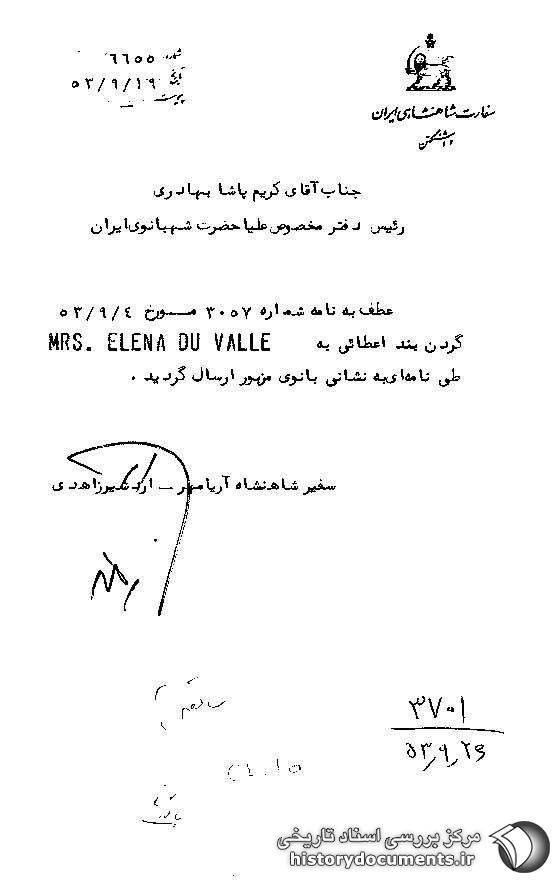 شماره ٦٦٥٥
تاریخ ٥٣/٩/١٩
پیوست
سفارت شاهنشاهی ایران
واشنگتن
جناب آقای کریم پاشا بهادری
رئیس دفتر مخصوص علیا حضرت شهبانوی ایران
عطف به نامه شماره ٣٠٥٧ مورخ ٥٣/٩/٤
گردن بند اعطائی به MRS. ELENA DU VALLE
طی نامه‌ای به نشانی بانوی مزبور ارسال گردید .
سفیر شاهنشاه آریامهر ـ اردشیر زاهدی
٣٧٠١
٥٣٫٩٫٢٤
مرکز بررسی اسناد تاریخی
historydocuments.ir